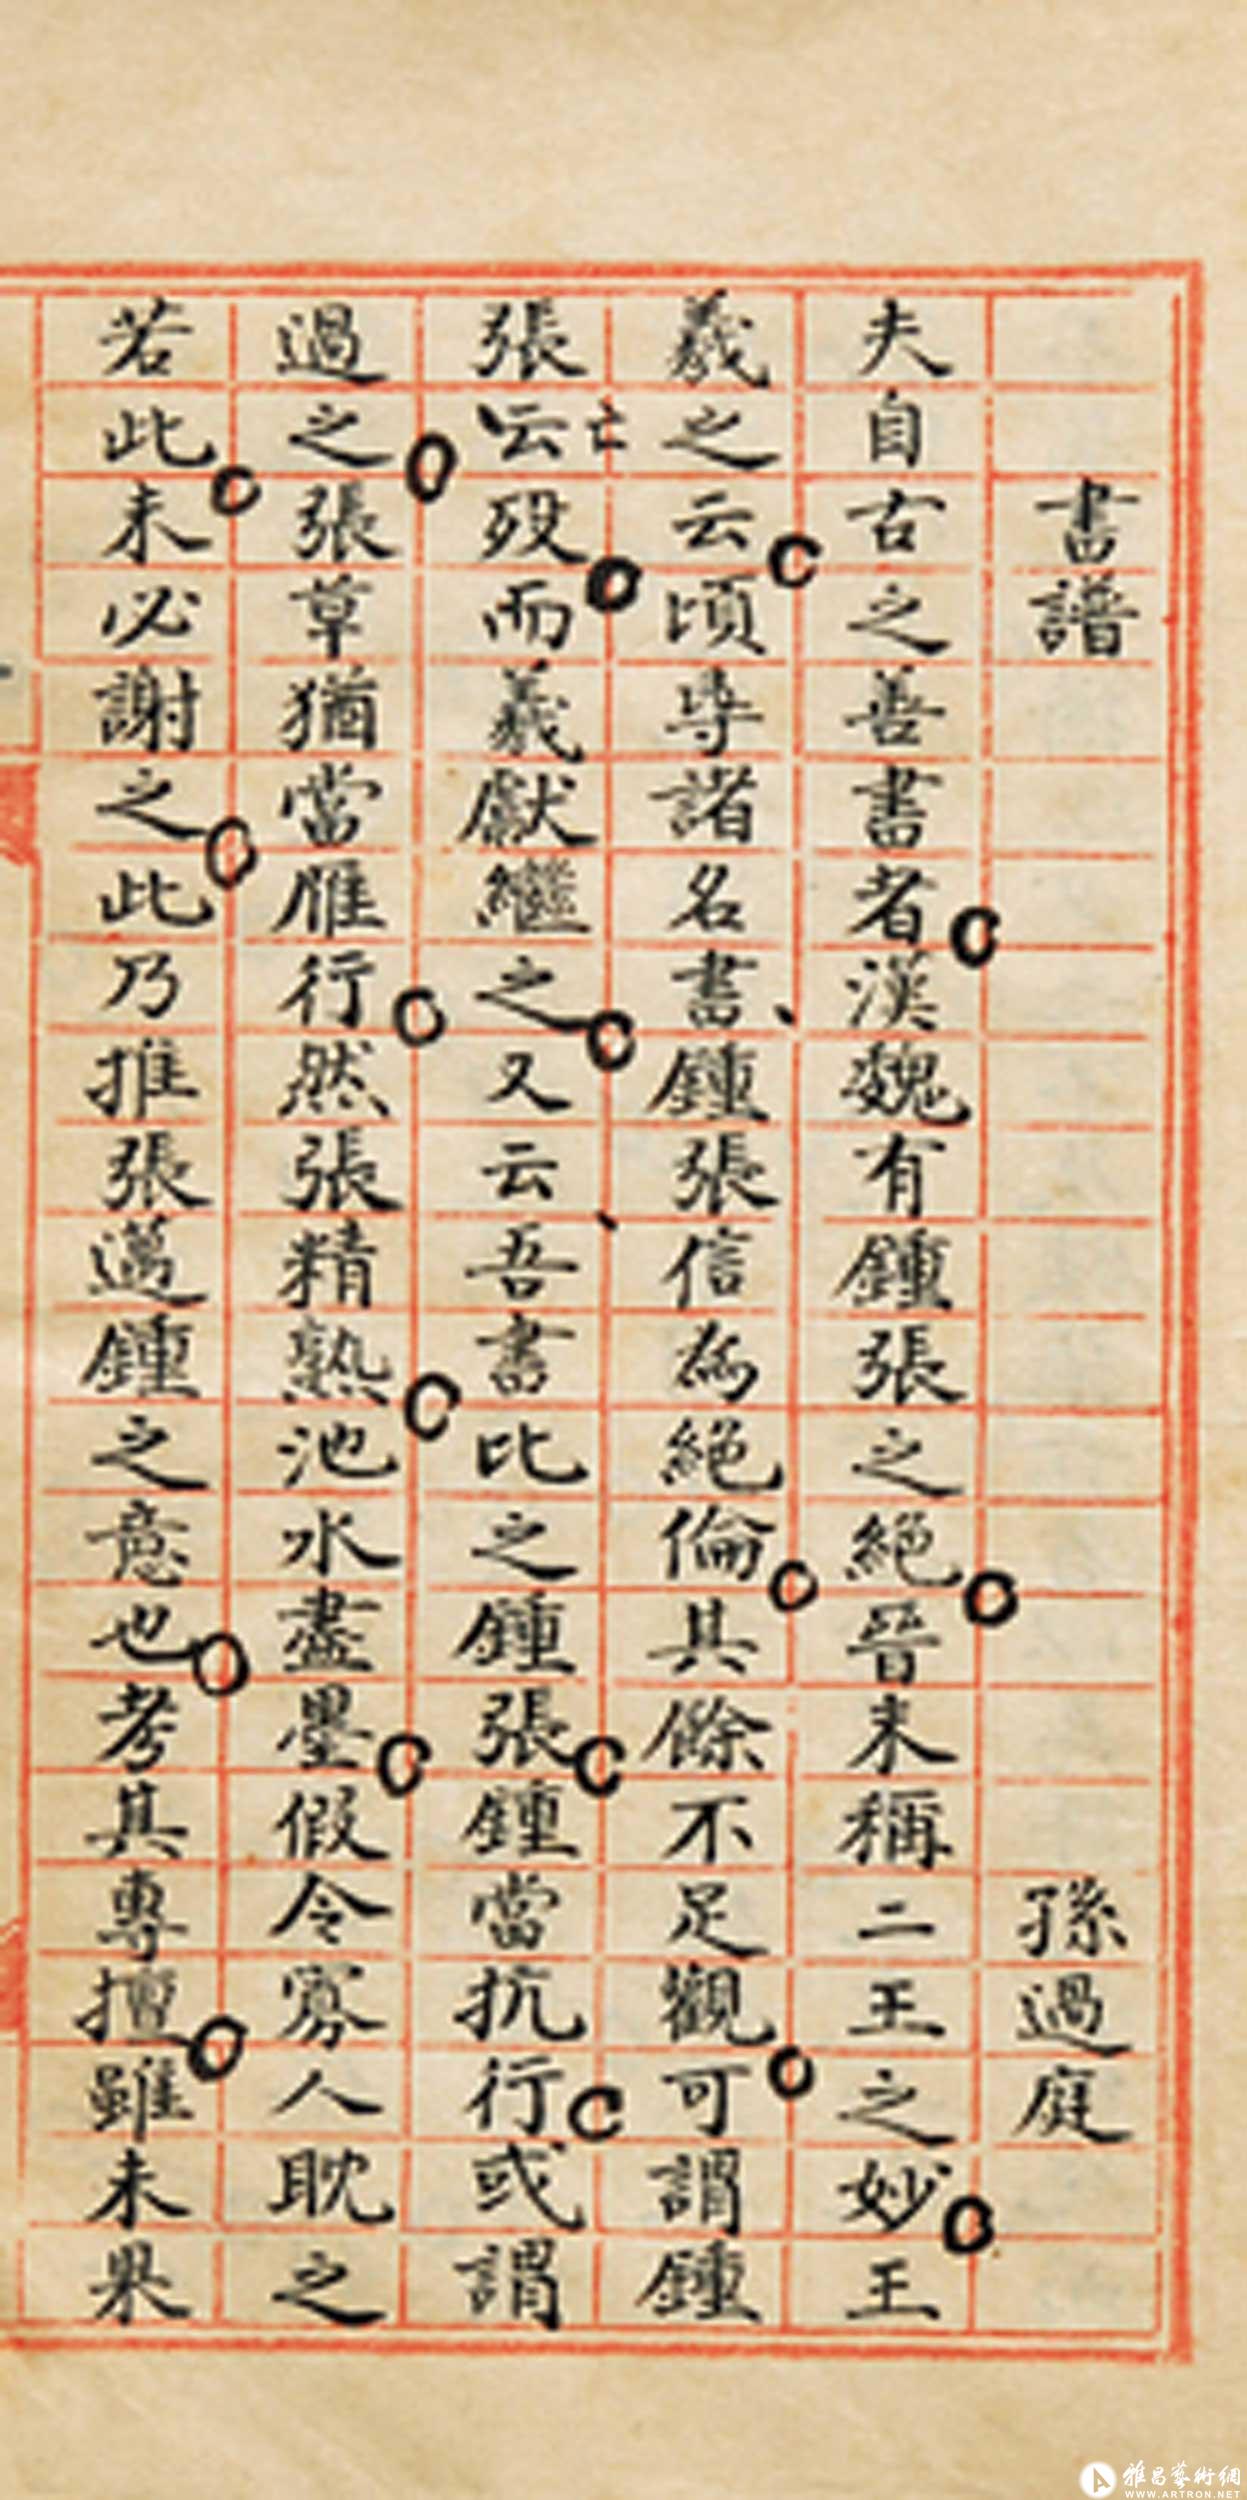 書譜 孫過庭
夫自古之善書者。漢魏有鍾張之絕。晉末稱二王之妙。王
羲之云。頃尋諸名書、鍾張信為絕倫。其餘不足觀。可謂鍾
張云歿。而羲獻繼之。又云、吾書比之鍾張。鍾當抗行。或謂
亡
過之。張草猶當雁行。然張精熟。池水盡墨。假令寡人耽之
若此。未必謝之。此乃推張邁鍾之意也。考其專擅。雖未果
雅昌藝術網
WWW.ARTRON.NET